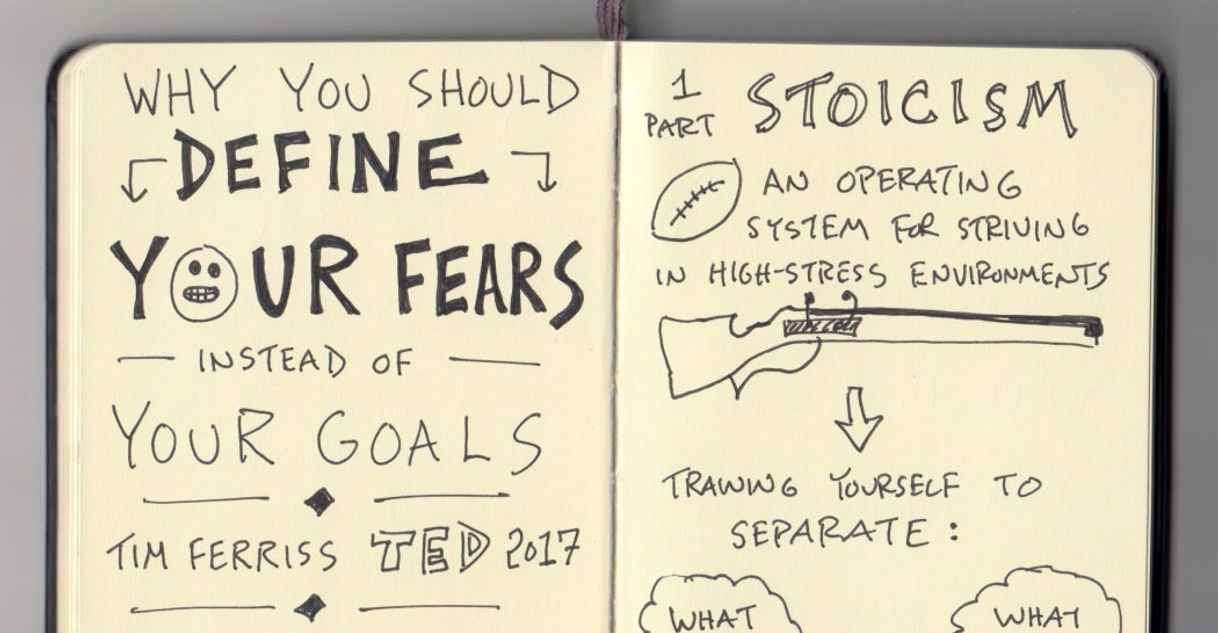 WHY YOU SHOULD
DEFINE
YOUR FEARS
INSTEAD OF
YOUR GOALS
TIM FERRISS TED 2017
1 PART STOICISM
AN OPERATING
SYSTEM FOR STRIVING
IN HIGH-STRESS ENVIRONMENTS
TRAINING YOURSELF TO
SEPARATE:
WHAT WHAT